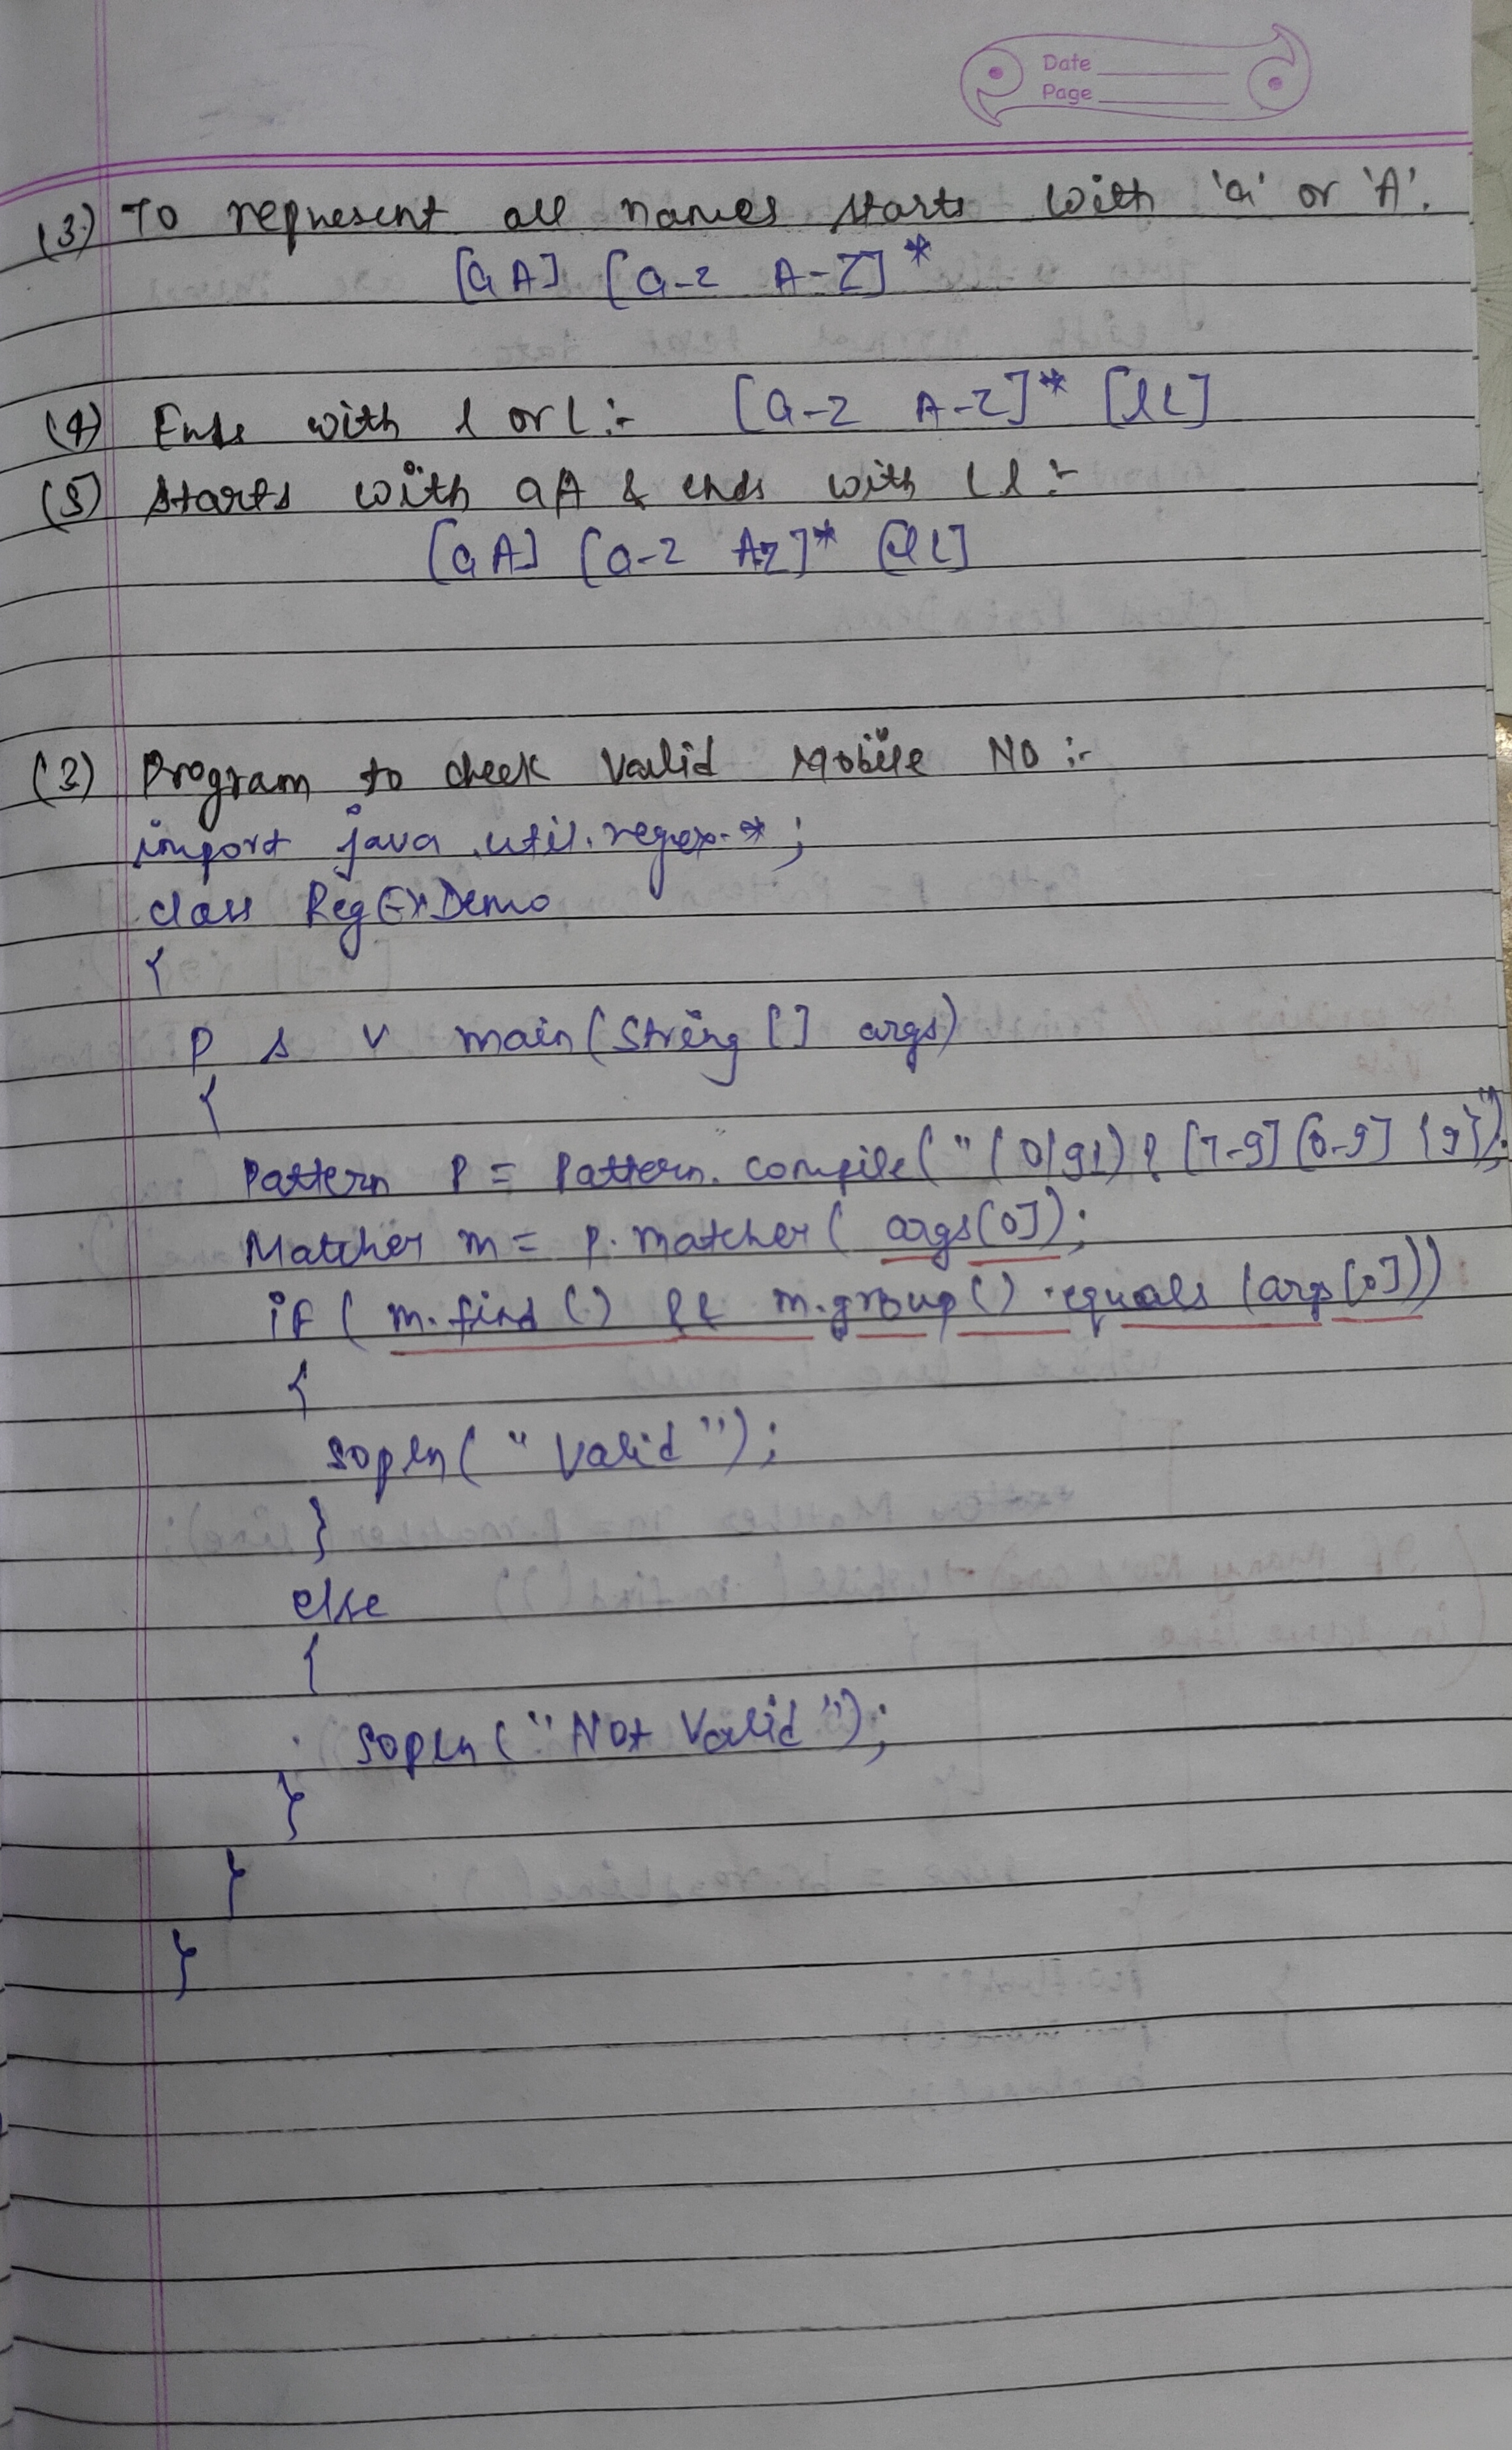 Date
Page
(3) To represent all names starts with 'a' or 'A'.
[aA] [a-z A-Z]*
(4) Ends with l or L :- [a-z A-Z]* [lL]
(5) starts with aA & ends with L l :-
[aA] [a-z A-Z]* [lL]
(2) Program to check Valid Mobile NO :-
import java.util.regex.*;
class RegExDemo
{
p s v main(String [] args)
{
Pattern p = Pattern.compile("(0|91)?[7-9][0-9]{9}");
Matcher m = p.matcher(args[0]);
if (m.find() && m.group().equals(args[0]))
{
sopln("Valid");
}
else
{
sopln("Not Valid");
}
}
}